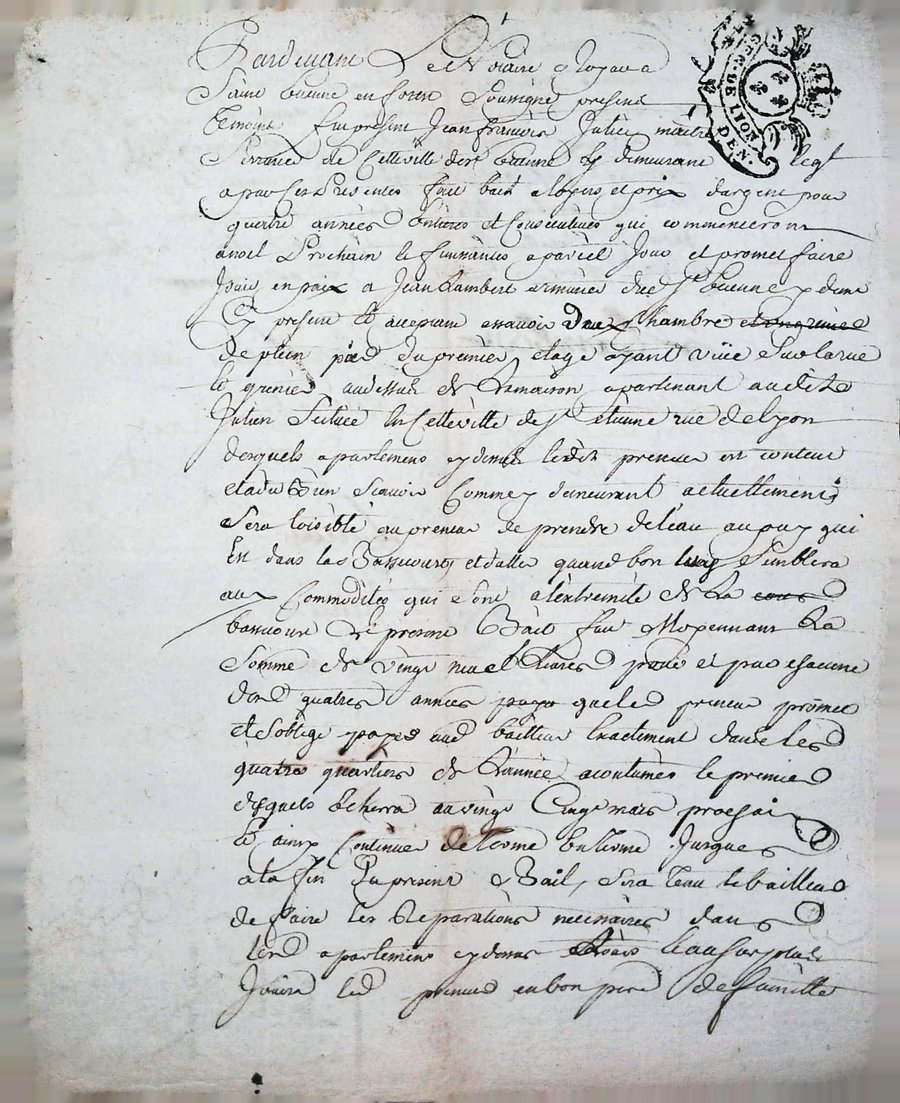 Pardevant Le Notaire Royal a
Saint Etienne en forest Soussigné present
temoins fut present Jean François Julien maitre
de Cette ville de St Etienne y demeurant lequel
a par Ces Presentes fait bail a loyers et prix dargent pour
quatre années Entieres et Consecutives qui commenceront
a noel Prochain le finissantes a pareil Jour et promet faire
Jouir en paix a Jean Lambert armurier de St Etienne y dem
Cy present Et acceptant assavoir deux Chambre
de plein pied du premier etage ayant vüe Sur la rue
le grenier au dessus de La maison apartenant audit
Julien Scituée En Cette ville de St etienne rue de Lyon
desquels apartemens cy dessus ledit preneur est content
Comme y demeurant actuellement
Sera loisible au preneur de prendre de leau au puy qui
Est dans la Bassecourt et daller quand bon luy Semblera
aux Commodités qui sont a lextremité de La cour
bassecour Le present Bail fait Moyennant La
Somme de vingt neuf Livres pour et par chacune
desd quatres années payer preneur promet
et soblige payer aud bailleur Exactement dans les
quatre quartiers de Lannée acoutumés le premier
desquels Echerra au vingt Cinq mars prochain
Et ainsy Continuer de terme En terme Jusques
a la fin Du present Bail, sera tenu le bailleur
de faire les Reparations necessaires dans
lesd apartemens cy dessus
Jouira led preneur en bon pere de famille
GEN. DE LYON
DEN.